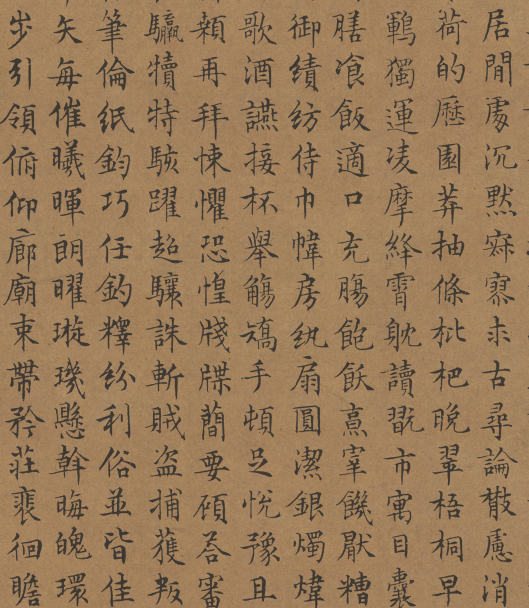 居閒處沉默寂寥求古尋論散慮消
荷的歷園莽抽條枇杷晚翠梧桐早
鵾獨運凌摩絳霄耽讀翫市寓目囊
膳飡飯適口充腸飽飫烹宰饑厭糟
御績紡侍巾幃房紈扇圓潔銀燭煒
歌酒讌接杯舉觴矯手頓足悅豫且
顙再拜悚懼恐惶牋牒簡要顧荅審
驘犢特駭躍超驤誅斬賊盗捕獲叛
筆倫紙鈞巧任釣釋紛利俗並皆佳
矢每催曦暉朗曜璇璣懸斡晦魄環
步引領俯仰廊廟束帶矜莊裵徊瞻